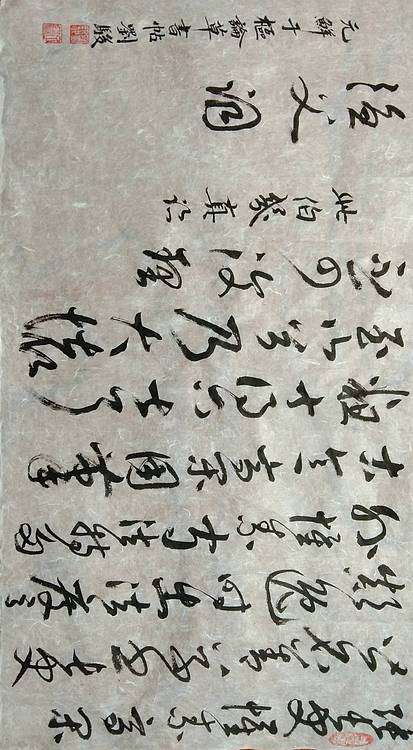 張長史懷素高閑
皆名善草書長史
顛逸時出法度
外懷素守法特多
古意高閑用筆
粗十得六七耳
至山谷乃大壞
不可復理
此伯幾真
元鮮于樞論草書帖 劉駿